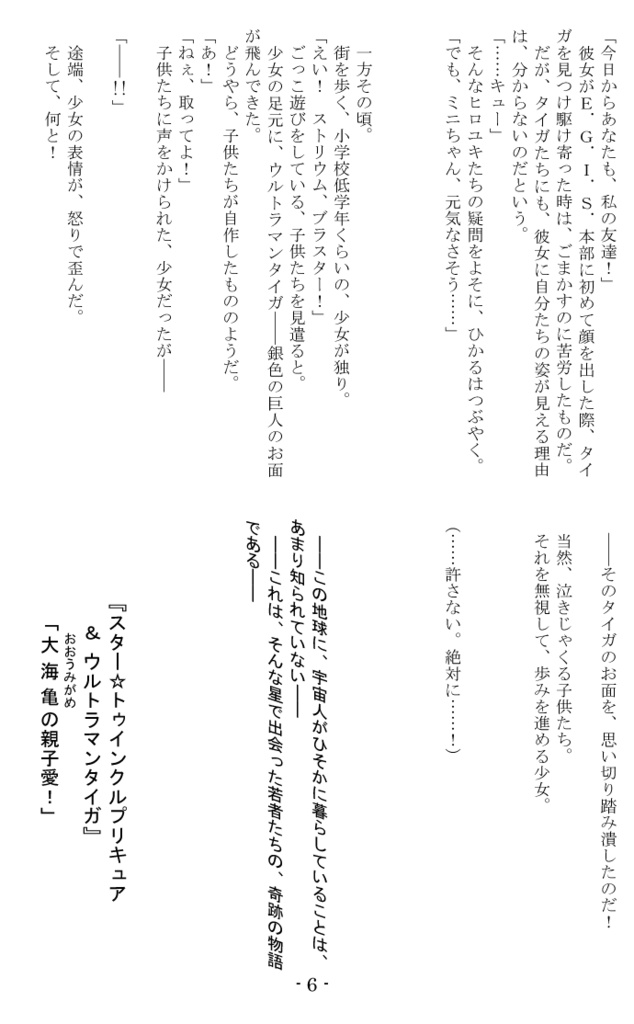 「今日からあなたも、私の友達！」
　彼女がＥ．Ｇ．Ｉ．Ｓ．本部に初めて顔を出した際、タイ
ガを見つけ駆け寄った時は、ごまかすのに苦労したものだ。
　だが、タイガたちにも、彼女に自分たちの姿が見える理由
は、分からないのだという。
「……キュー」
　そんなヒロユキたちの疑問をよそに、ひかるはつぶやく。
「でも、ミニちゃん、元気なさそう……」
　一方その頃。
　街を歩く、小学校低学年くらいの、少女が独り。
「えい！　ストリウム、ブラスター！」
　ごっこ遊びをしている、子供たちを見遣ると。
　少女の足元に、ウルトラマンタイガ――銀色の巨人のお面
が飛んできた。
　どうやら、子供たちが自作したもののようだ。
「あ！」
「ねぇ、取ってよ！」
　子供たちに声をかけられた、少女だったが――
「――!!」
　途端、少女の表情が、怒りで歪んだ。
　そして、何と！
　――そのタイガのお面を、思い切り踏み潰したのだ！
　当然、泣きじゃくる子供たち。
　それを無視して、歩みを進める少女。
（……許さない。絶対に……！）
　――この地球に、宇宙人がひそかに暮らしていることは、
あまり知られていない――
　――これは、そんな星で出会った若者たちの、奇跡の物語
である――
『スター☆トゥインクルプリキュア
＆ ウルトラマンタイガ』
「大海亀の親子愛！」
おおうみがめ
- 6 -